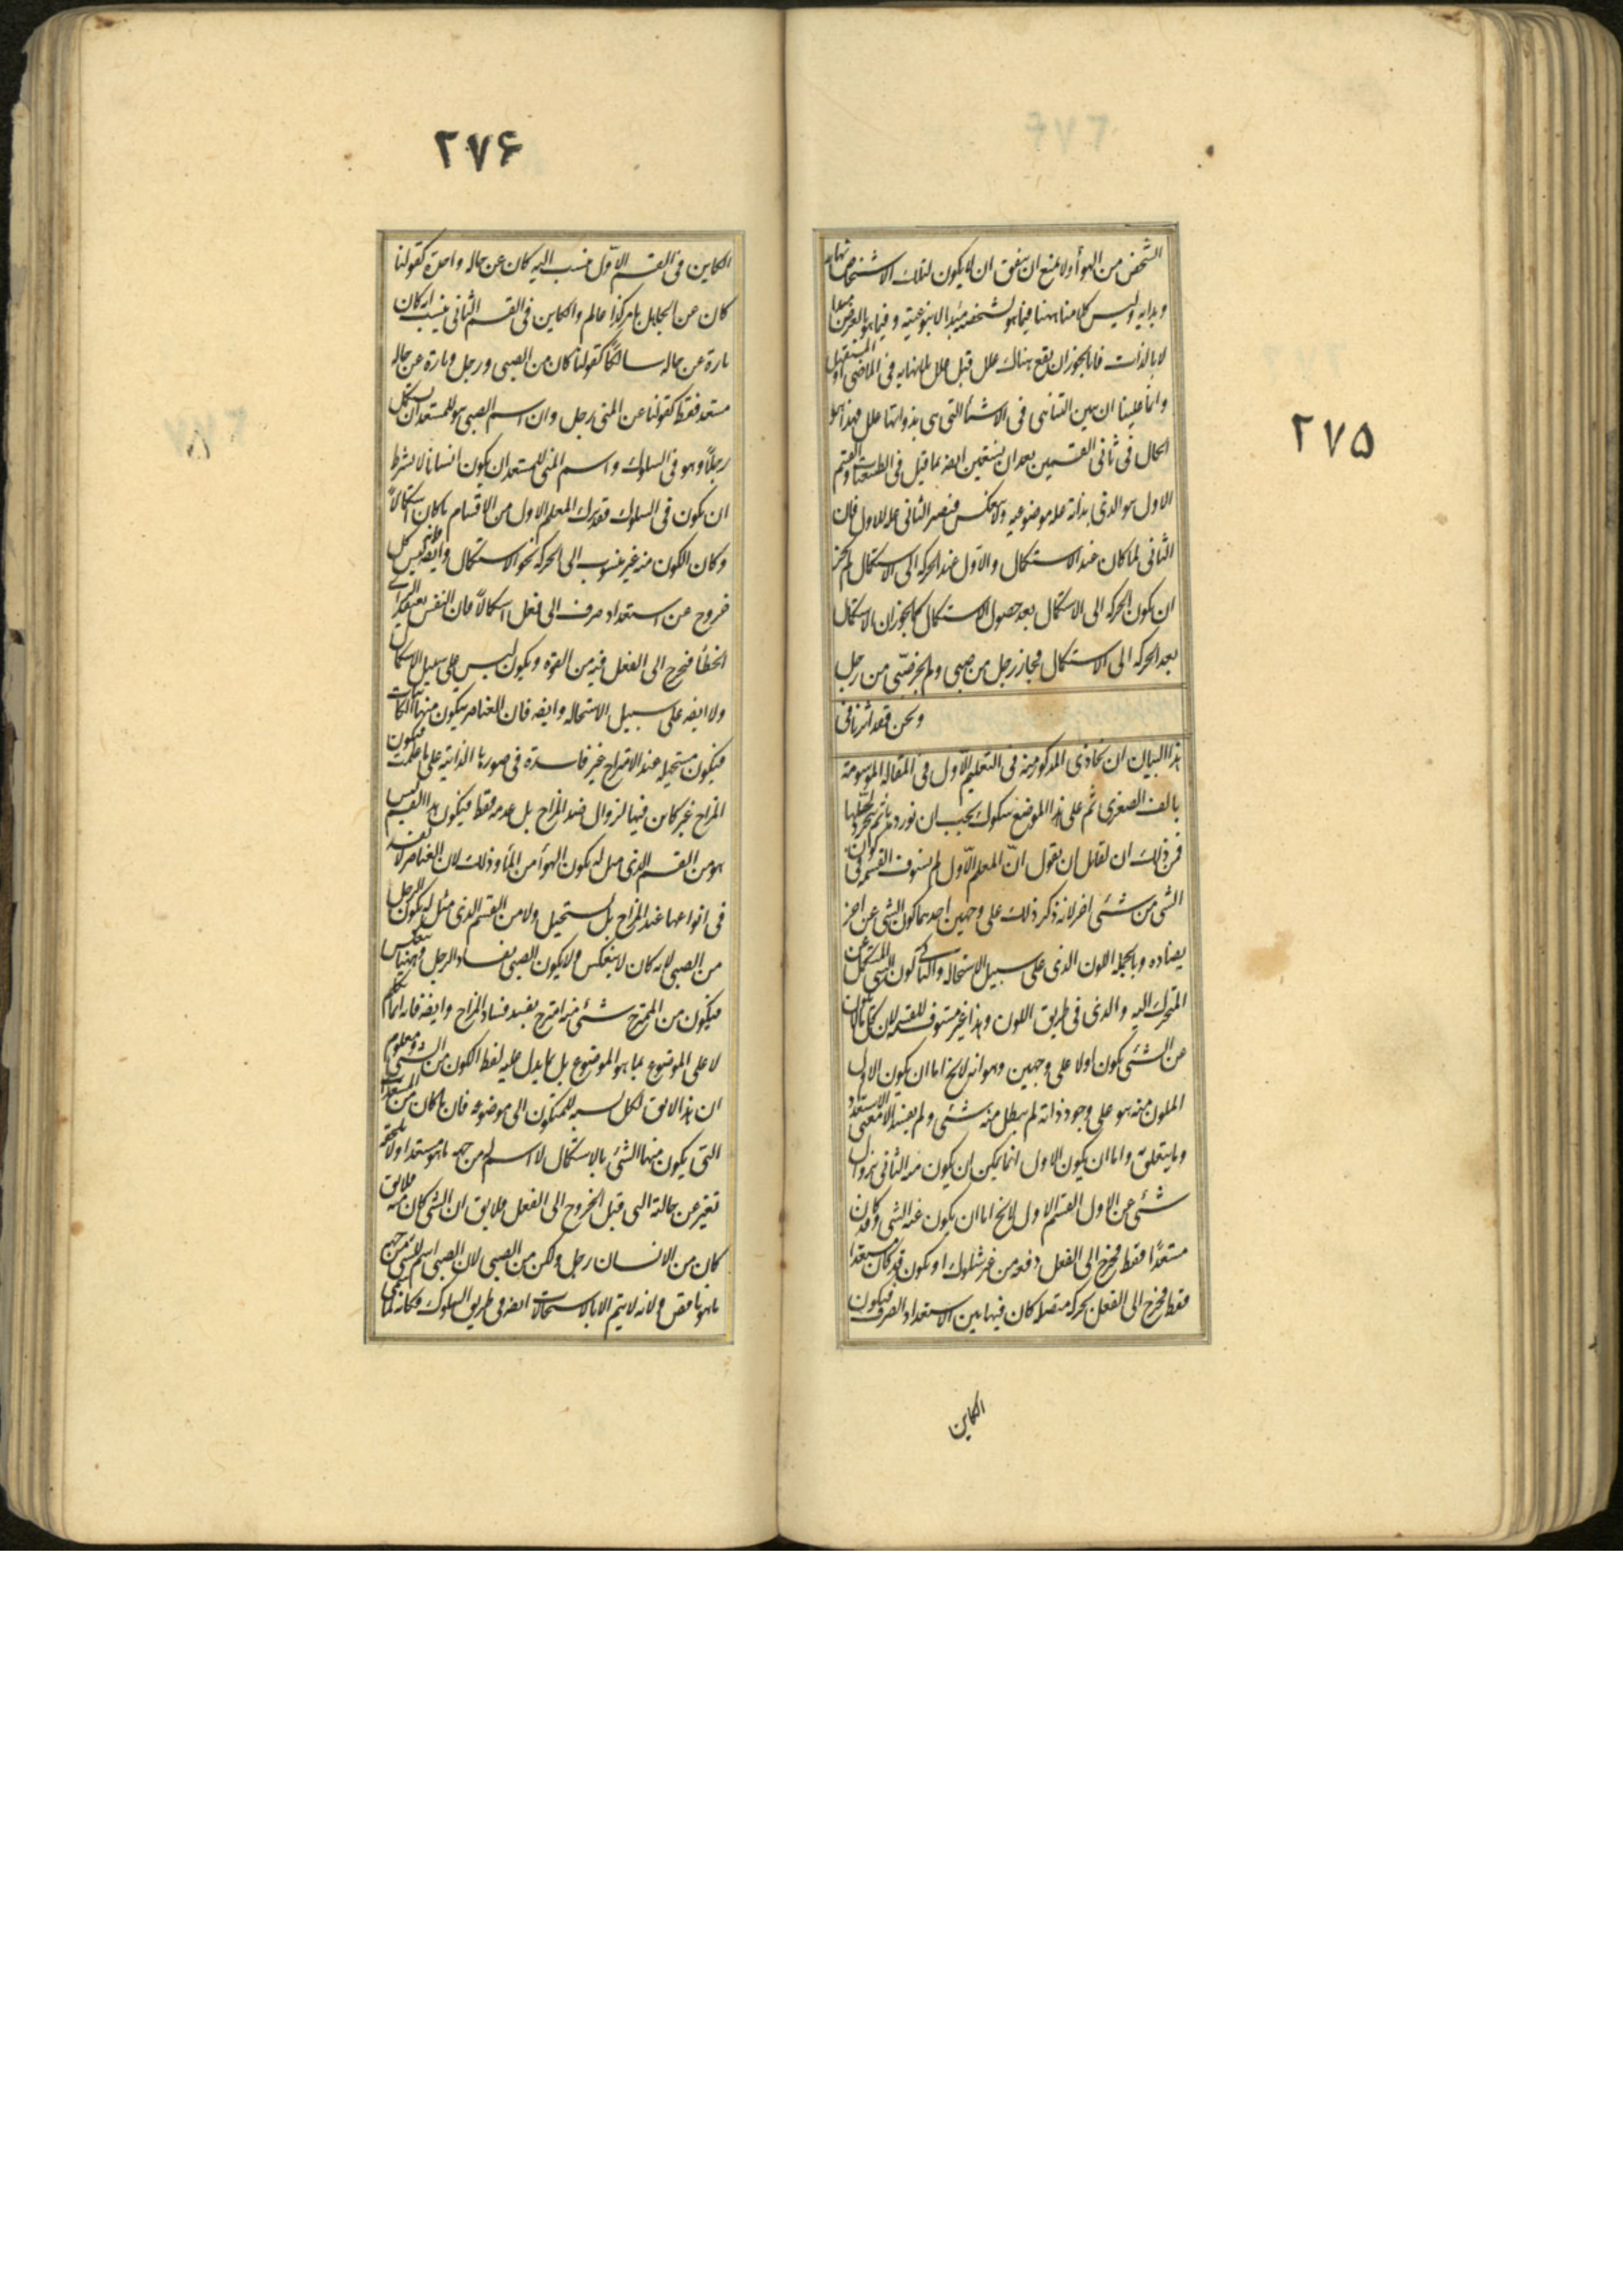 ٢٧۵
الشخص من الهوأ ولا يمنع ان يتفق ان لا يكون لتلك الاشخاص نهايه
وبدايه وليس كلامنا ههنا فيما هو بشخصيته مبدا لا بنوعيته وفيما هو بالعرض
لا بالذات فانا نجوز ان يقع هناك علل قبل علل بلا نهايه فى الماضى او المستقبل
وانما علينا ان نبين التناهى فى الاشيأ التى هى بذواتها علل فهذا هو
الحال فى ثانى القسمين بعد ان نستعين ايضه بما قيل فى الطبيعيات والقسم
الاول هو الذى بذاته عله موضوعيه ولا ينعكس فيصير الثانى عله للاول فان
الثانى لما كان عند الاستكمال والاول عند الحركه الى الاستكمال لم يجز
ان يكون الحركه الى الاستكمال بعد حصول الاستكمال كما يجوز ان الاستكمال
بعد الحركه الى الاستكمال فجاز رجل من صبى ولم يجز صبّى من رجل
ونحن قصد اثرنا فى
هذا البيان ان نحاذى المذكور منه فى التعليم الاول فى المقاله الموسومة
بالف الصغرى ثم على هذا الموضع شكوك يجب ان نوردها ثم نتجرد لحلها
فمن ذلك ان لقايل ان يقول انّ المعلم الاول لم يستوف القسمه فى كون
الشى من شئى اخر لانه ذكر ذلك على وجهين احدهما كون الشى عن اخر
يضاده وبالجمله الكون الذى على سبيل الاستحاله والثانى كون المستكمل عن
المتحرك اليه والذى فى طريق الكون وهذا غير مستوف للقسمه لان كل ما كان
عن الشئى يكون اولا على وجهين وهو انه لايخ اما ان يكون الاول
المكون منه هو على وجود ذاته لم يبطل منه شئى ولم يفسد الا معنى الاستعداد
وما يتعلق به واما ان يكون الاول انما يمكن ان يكون منه الثانى بزوال
شئى عن الاول القسم الاول لايخ اما ان يكون عنه الشى وكان
مستعدًا فقط فخرج الى الفعل دفعه من غير سلوك او يكون قد كان مستعدا
فقط فخرج الى الفعل بحركه متصله كان فيها بين الاستعداد الصرف فيكون
الكاين
٢٧۶
الكاين فى القسم الاوّل ينسب اليه كان عن حاله واحدة كقولنا
كان عن الجاهل بامر كذا عالم والكاين فى القسم الثانى ينسب انه كان
تارة عن حاله سالكًا كقولنا كان من الصبى ورجل وتارة عن حاله
مستعد فقط كقولنا عن المنى رجل وان اسم الصبى هو للمستعد ان يستكمل
رجلًا وهو فى السلوك واسم المنى للمستعد ان يكون انسانا لا بشرط
ان يكون فى السلوك فقد ترك المعلم الاول من الاقسام ما كان استكمالًا
وكان الكون منه غير منسوب الى الحركه نحو الاستكمال وايضه فليس كل
خروج عن استعداد صرف الى فعل استكمالًا فان النفس يعتقد الراى
الخطأ فتخرج الى الفعل فيه من القوه ويكون ليس على سبيل الاستكمال
ولا ايضه على سبيل الاستحاله وايضه فان العناصر يتكون منها الكاينات
فيكون مستحيله عند الامتزاج غير فاسدة فى صورها الذاتيه على ما علمت فيكون
المزاج غير كاين فيها لزوال ضد المزاج بل عدمه فقط فيكون هذا القسم ليس
هو من القسم الذى مثل له بكون الهوأ من المأ وذلك لان العناصر لا تفسد
فى انواعها عند المزاج بل تستحيل ولا من القسم الذى مثل له بكون الرجل
من الصبى لانه كان لا ينعكس ولا يكون الصبى بفساد الرجل وههنا ينعكس
فيكون من الممتزج شئى منه امتزج بفسد فساد المزاج وايضه فانه انما تكلم
لا على الموضوع بما هو الموضوع بل بما يدل عليه لفظ الكون من الشئى ومعلوم
ان هذا لايق لكل نسبه للمتكون الى موضوعه فان ما كان من المستعدات
التى يكون منها الشئ بالاستكمال لا اسم له من جهه ما هو مستعد ولا يلحقه
تغير عن حالته التى قبل الخروج الى الفعل فلا يق ان الشئى كان منه فلا يق
كان من الانسان رجل ولكن من الصبى لان الصبى اسم لشئى من جهه
ما هو ناقص ولانه لا يتم الا بالاستحالات ايضه فى طريق السلوك فكانه لما